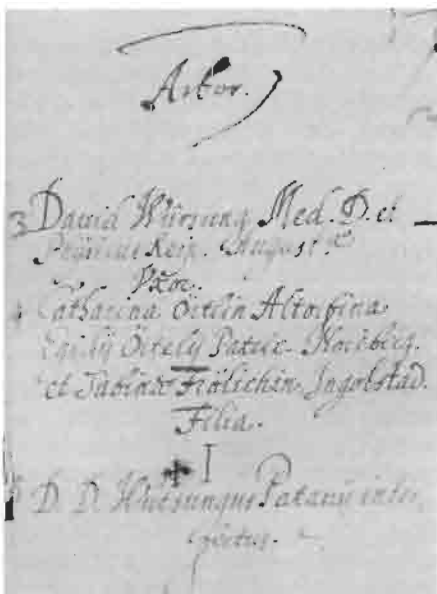 Arbor.
3 David Würsung Med. D. et
Physicus Reip. August.
Vxor.
4 Catharina Örtlin Altorfina
Egidij Örtelij Patric. Norēberg.
et Sabinæ Frölichin Ingolstad.
Filia.
I
D. D. Wirsungus Patavij inter-